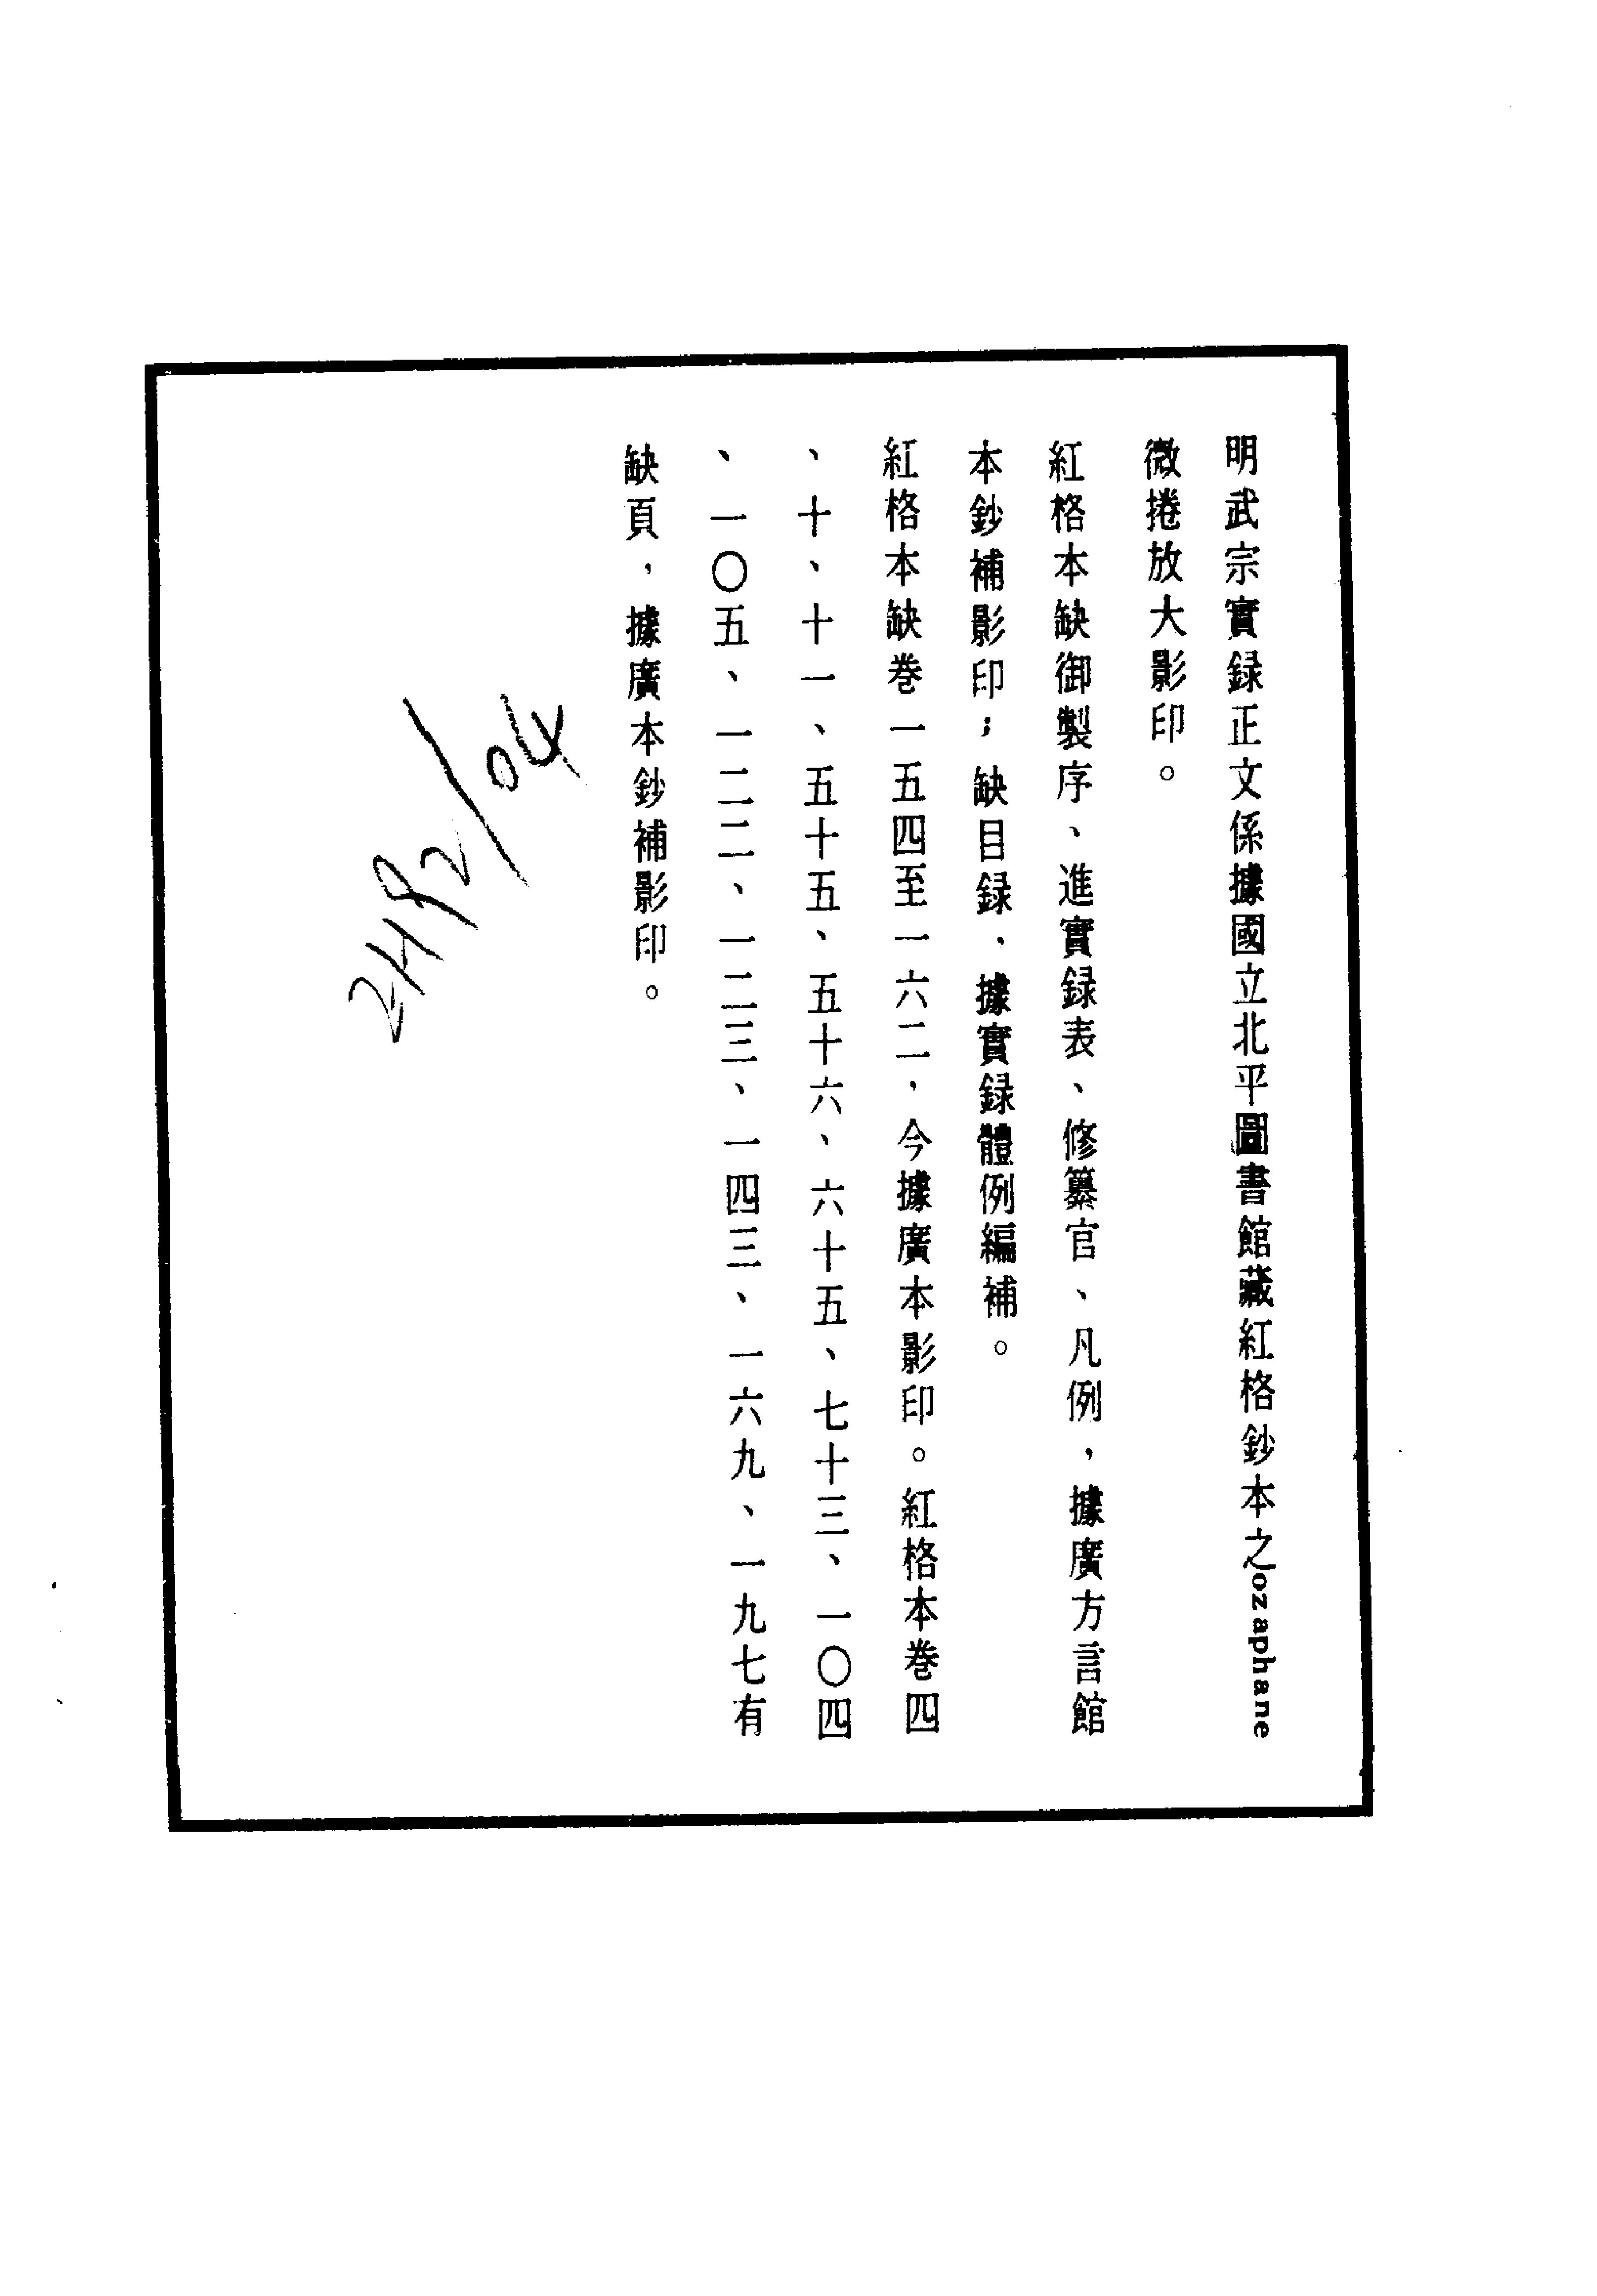 明武宗實録正文係據國立北平圖書館藏紅格鈔本之ozaphane
微捲放大影印。
紅格本缺御製序、進實録表、修纂官、凡例，據廣方言館
本鈔補影印；缺目録，據實録體例編補。
紅格本缺卷一五四至一六二，今據廣本影印。紅格本卷四
、十、十一、五十五、五十六、六十五、七十三、一〇四
、一〇五、一二二、一二三、一四三、一六九、一九七有
缺頁，據廣本鈔補影印。